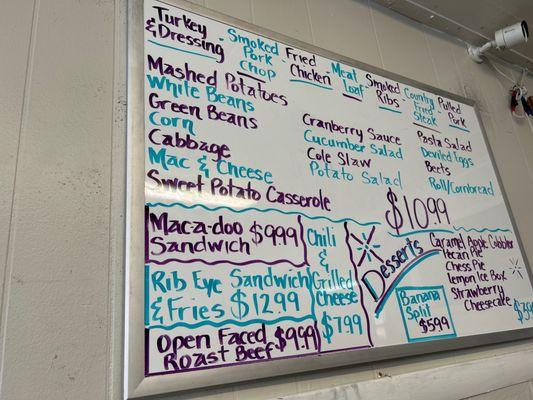 Turkey & Dressing - Smoked Pork Chop - Fried Chicken - Meat Loaf - Smoked Ribs - Country Fried Steak - Pulled Pork
Mashed Potatoes
White Beans
Green Beans
Corn
Cabbage
Mac & Cheese
Sweet Potato Casserole
Cranberry Sauce
Cucumber Salad
Cole Slaw
Potato Salad
Pasta Salad
Deviled Eggs
Beets
Roll/Cornbread
$10.99
Mac-a-doo
Sandwich $9.99
Rib Eye Sandwich
& Fries $12.99
Open Faced
Roast Beef $9.99
Chili
&
Grilled
Cheese
$7.99
Desserts
Caramel Apple Cobbler
Pecan Pie
Chess Pie
Lemon Ice Box
Strawberry
Cheesecake
Banana
Split
$5.99